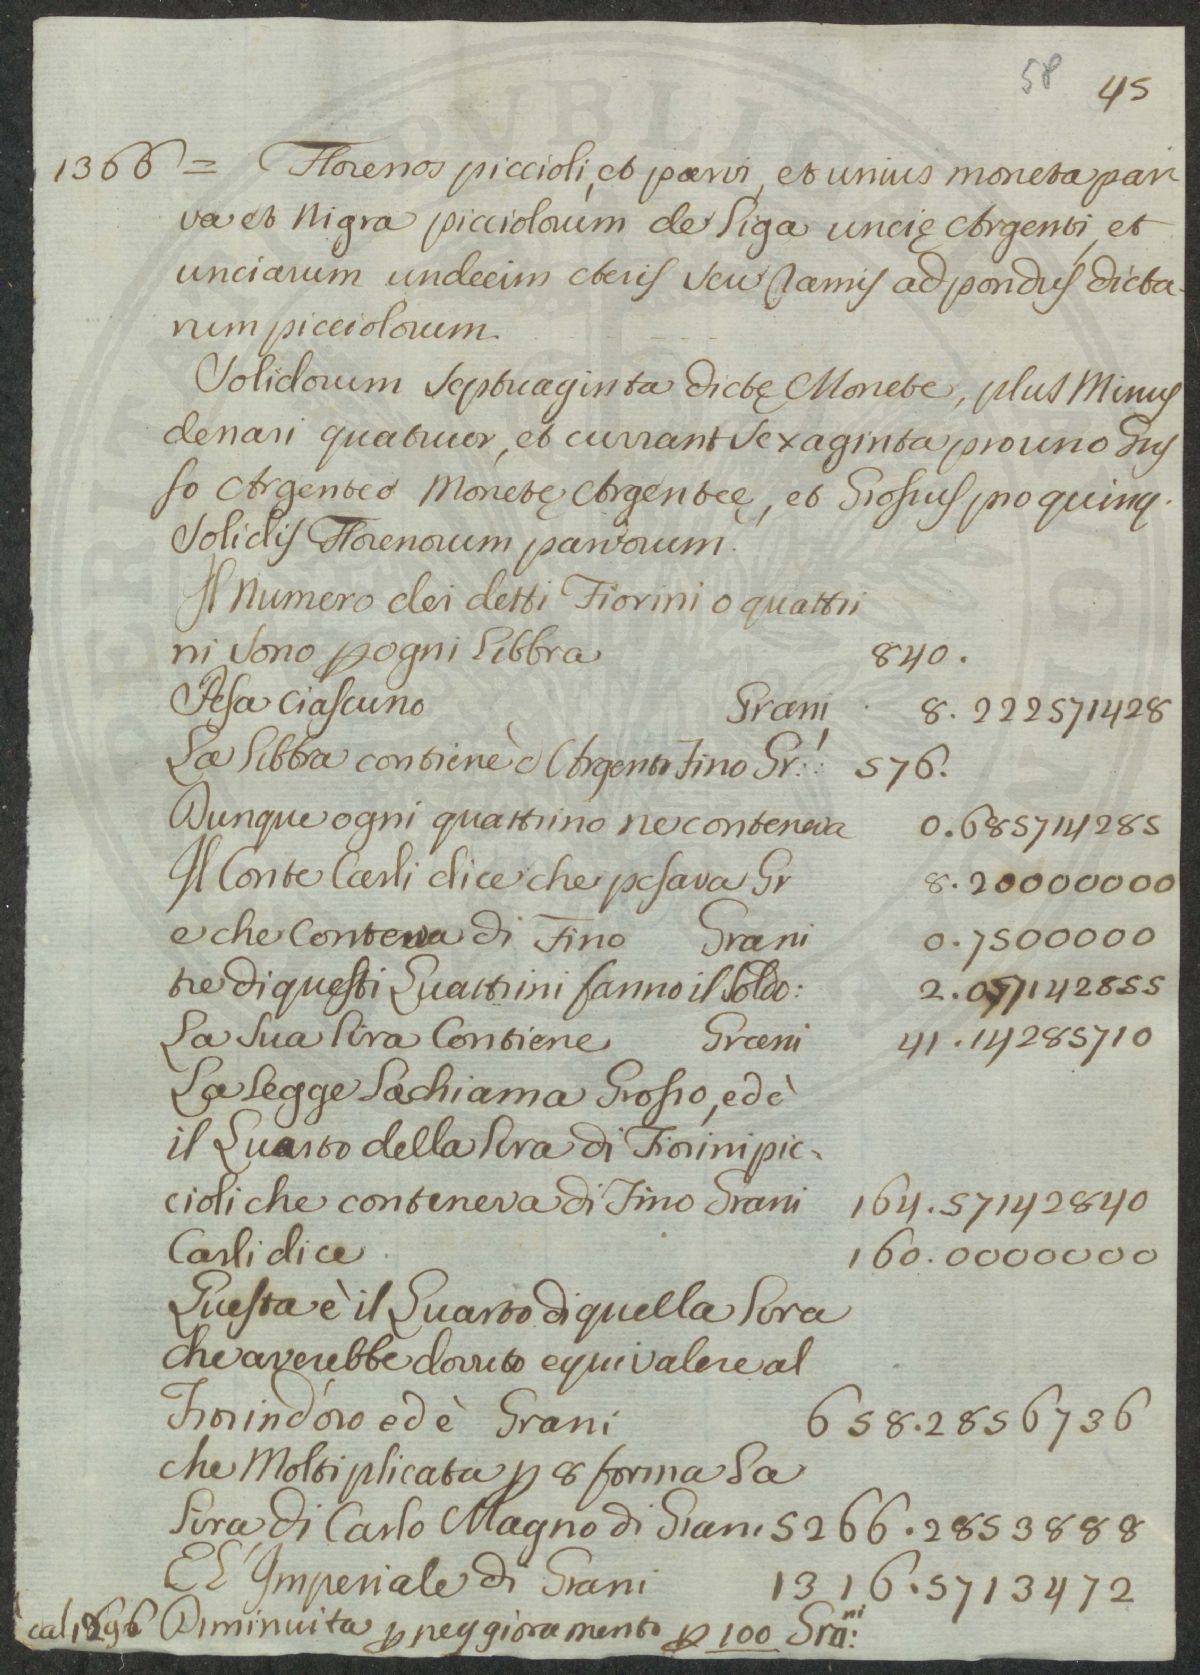 58 45
1366 = Florenos piccioli, et parvi, et unius moneta par
va et Nigra picciolorum de Liga uncię Argenti, et
unciarum undecim Aeris seu Ramis ad pondus dicta-
rum picciolorum.
Solidorum septuaginta dictę Monete, plus Minus
denari quatuor, et currant sexaginta pro uno Gros
so Argenteo Monetę Argenteę, et Grossus pro quinq.
Solidis Florenorum parvorum.
Il Numero dei detti Fiorini o quattri
ni sono p ogni Libbra 840.
Pesa ciascuno Grani 8.222571428
La Libbra contiene d'Argento Fino Gr: 576.
Dunque ogni quattrino ne conteneva 0.685714285
Il Conte Carli dice che pesava Gr 8.20000000
e che Conteneva di Fino Grani 0.7500000
tre di questi Quattrini fanno il Soldo: 2.057142855
La sua Lira Contiene Grani 41.14285710
La Legge La chiama Grosso, ed è
il Quarto della Lira di Fiorini pic-
cioli che conteneva di Fino Grani 164.57142840
Carli dice 160.0000000
Questa è il Quarto di quella Lira
che averebbe dovuto equivalere al
Fiorin d'oro ed è Grani 658.2856736
che Moltiplicata p 8 forma La
Lira di Carlo Magno di Grani 5266.2853888
E L'Imperiale di Grani 1316.5713472
Diminuita p peggioramento p 100 Gra:ni
PVBLI